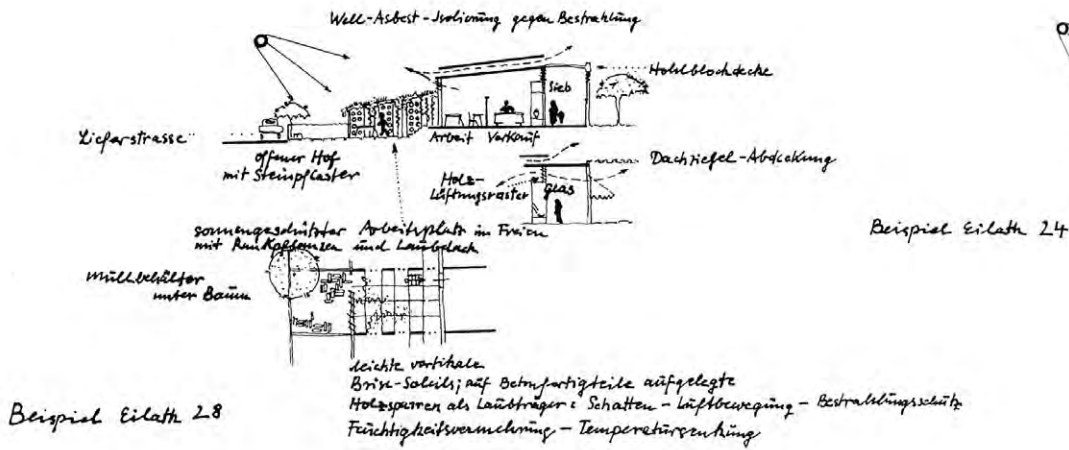 Well-Asbest-Isolierung gegen Bestrahlung
Hohlblockdecke
Sieb
Lieferstrasse
Arbeit Verkauf
offener Hof
mit Steinpflaster
Dachziegel-Abdeckung
Holz-
Lüftungsraster
Glas
sonnengeschützter Arbeitsplatz im Freien
mit Rankpflanzen und Laubdach
Beispiel Eilath 24
Müllbehälter
unter Baum
leichte vertikale
Brise-Soleils; auf Betonfertigteile aufgelegte
Holzsparren als Laubträger: Schatten - Luftbewegung - Bestrahlungsschutz
Feuchtigkeitsvermehrung - Temperatursenkung
Beispiel Eilath 28